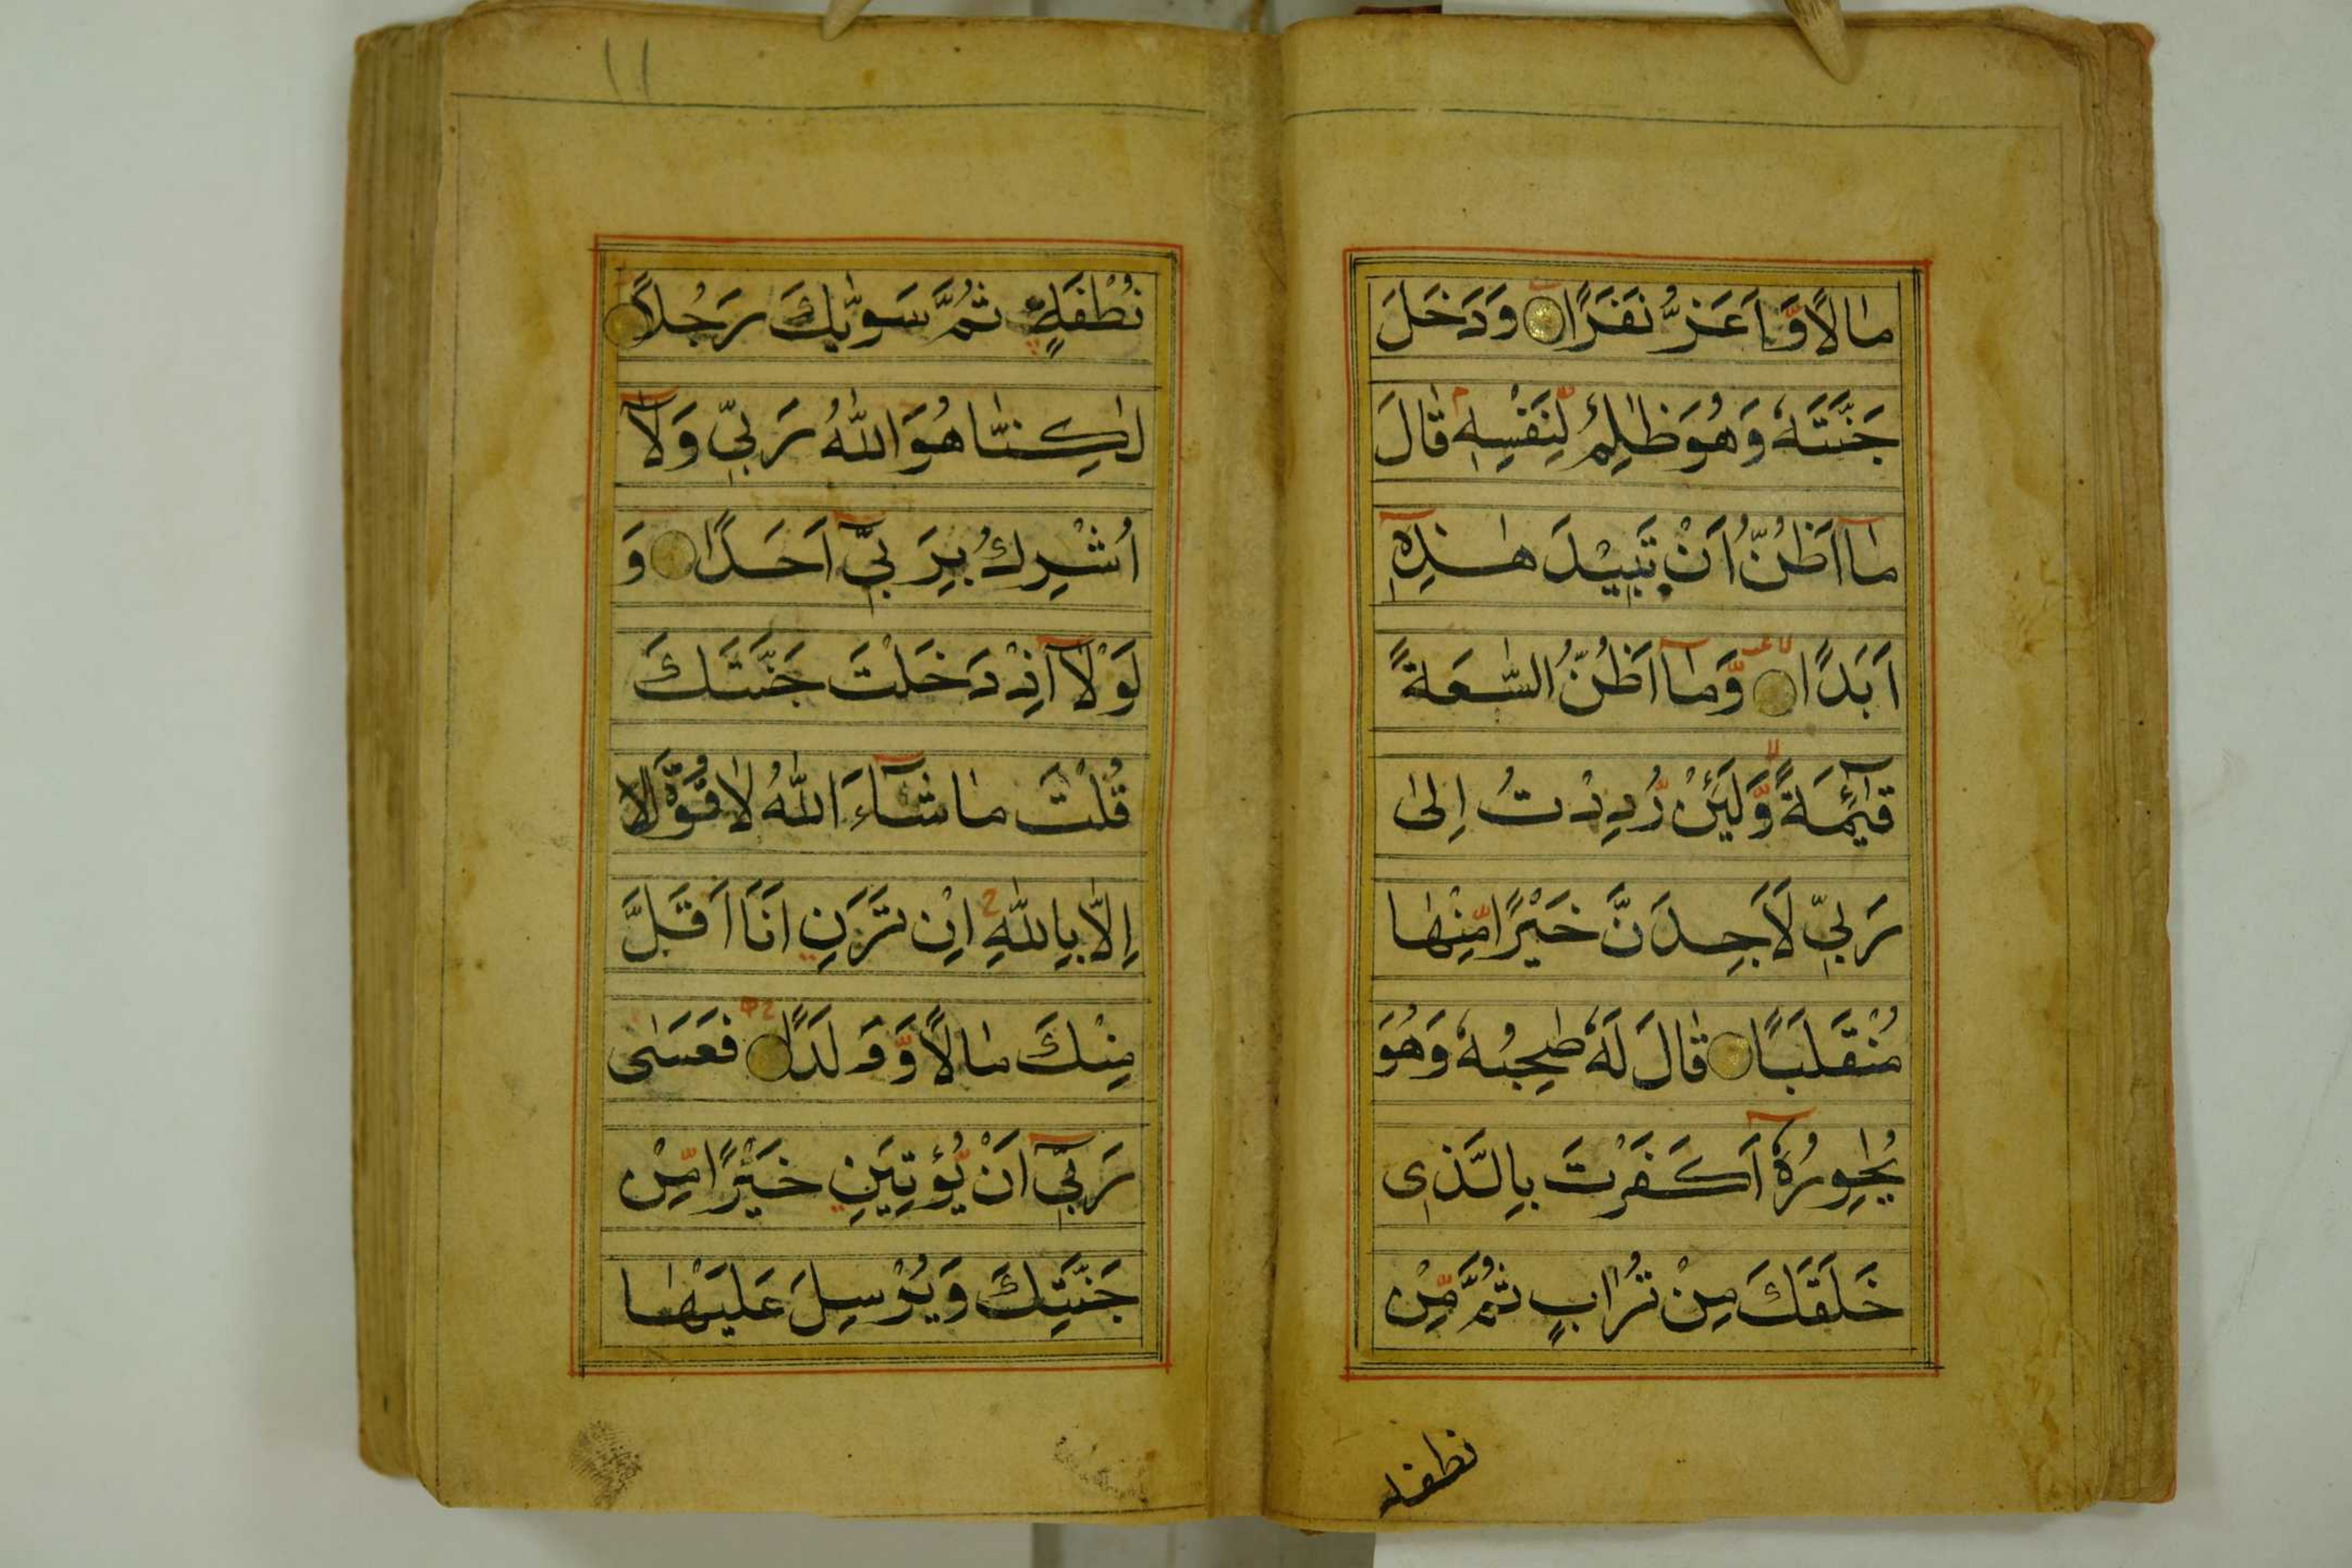 مٰالًا وَّاَعَزُّ نَفَرًا وَدَخَلَ
جَنَّتَهٗ وَهُوَ ظٰلِمٌ لِّنَفْسِهٖ قٰالَ
مٰا اَظُنُّ اَنْ تَبِيْدَ هٰذِهٖ
اَبَدًا وَّمٰا اَظُنُّ السّٰعَةً
قٰٓئِمَةً وَّلَئِنْ رُّدِدْتُ اِلىٰ
رَبِّي لَاَجِدَنَّ خَيْرًا مِّنْهٰا
مُنْقَلَبًا قٰالَ لَهٗ صٰحِبُهٗ وَهُوَ
يُحٰوِرُهٗٓ اَكَفَرْتَ بِالَّذِى
خَلَقَكَ مِنْ تُرٰابٍ ثُمَّ مِّنْ
نطفه
۱۱
نُطْفَةٍ ثُمَّ سَوّٰيكَ رَجُلًا
لٰكِنّٰا هُوَ اللّٰهُ رَبِّي وَلٰٓا
اُشْرِكُ بِرَبِّيٓ اَحَدًا وَ
لَوْلٰٓا اِذْ دَخَلْتَ جَنَّتَكَ
قُلْتَ مٰا شٰٓاءَ اللّٰهُ لٰا قُوَّةَ اِلا
اِلّٰا بِاللّٰهِ اِنْ تَرَنِ اَنَا اَقَلَّ
مِنْكَ مٰالًا وَّوَلَدًا فَعَسٰى
رَبِّيٓ اَنْ يُّؤْتِيَنِ خَيْرًا مِّنْ
جَنَّتِكَ وَيُرْسِلَ عَلَيْهٰا